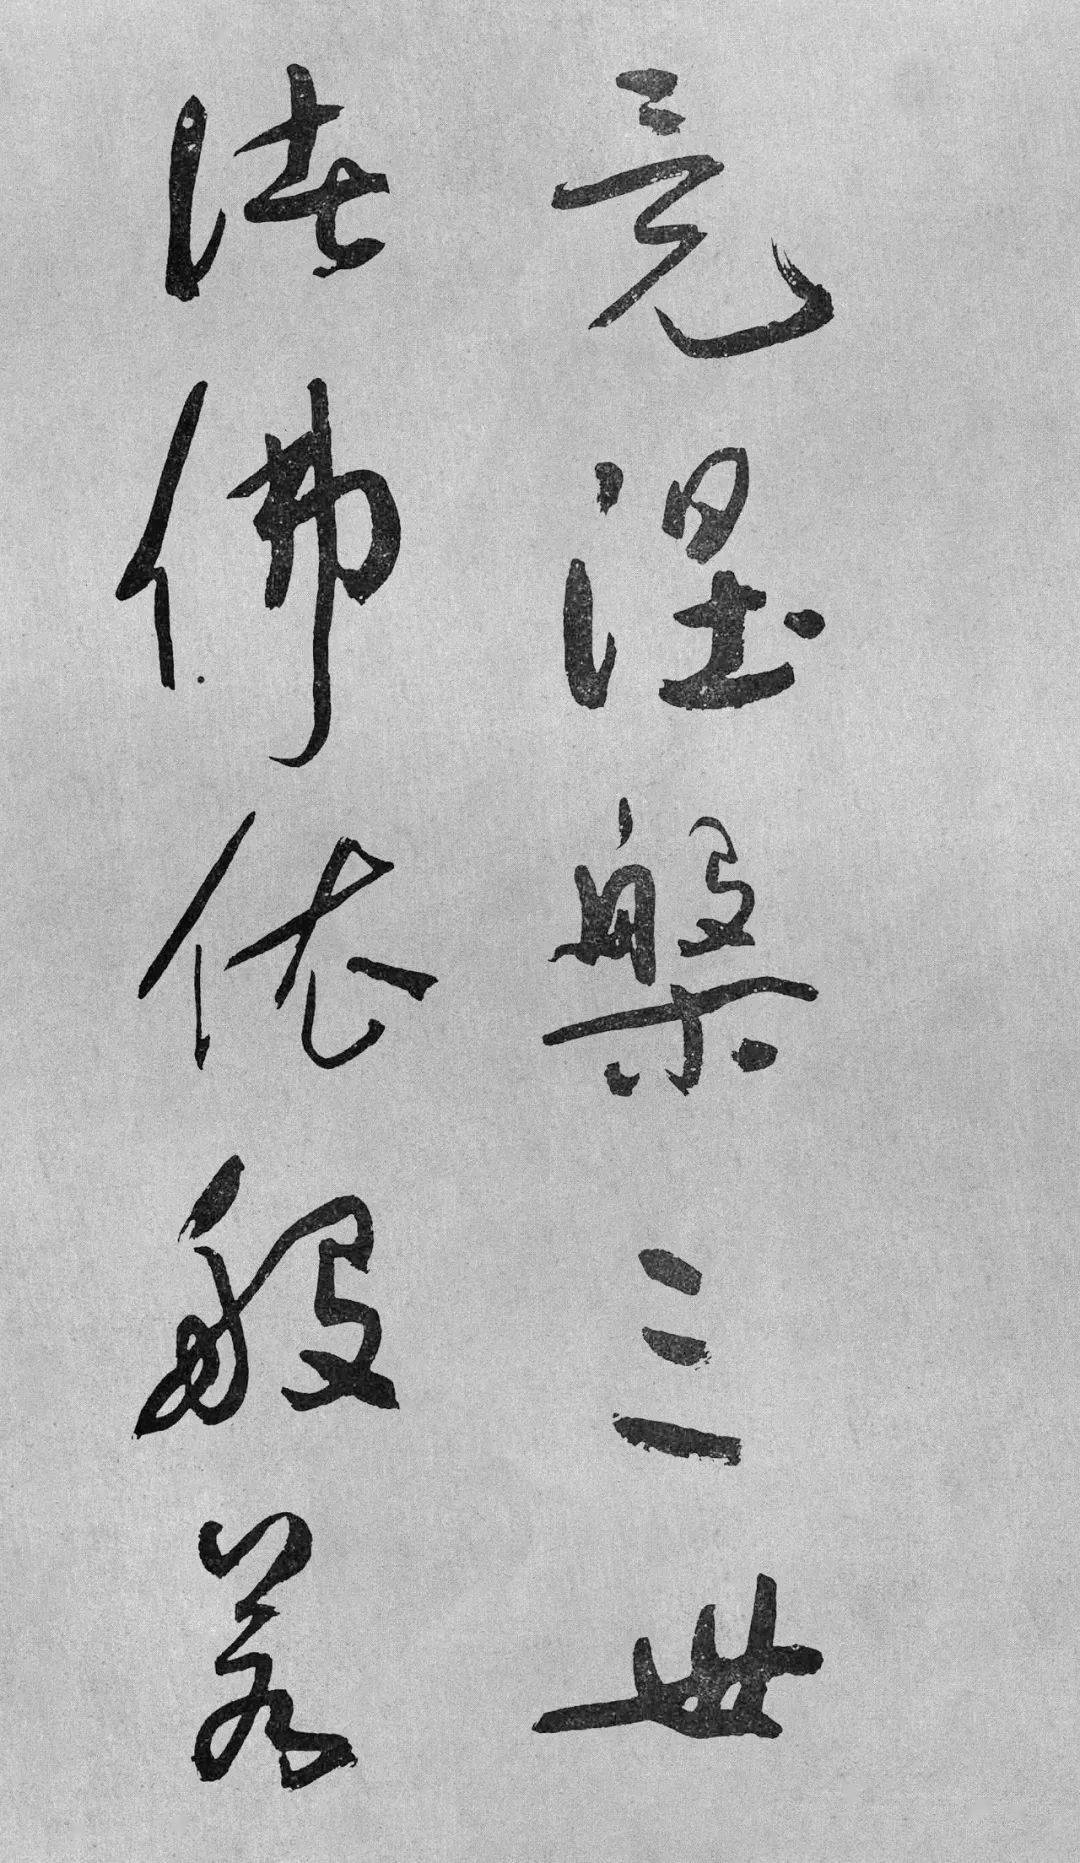 竟涅槃三世
諸佛依般若